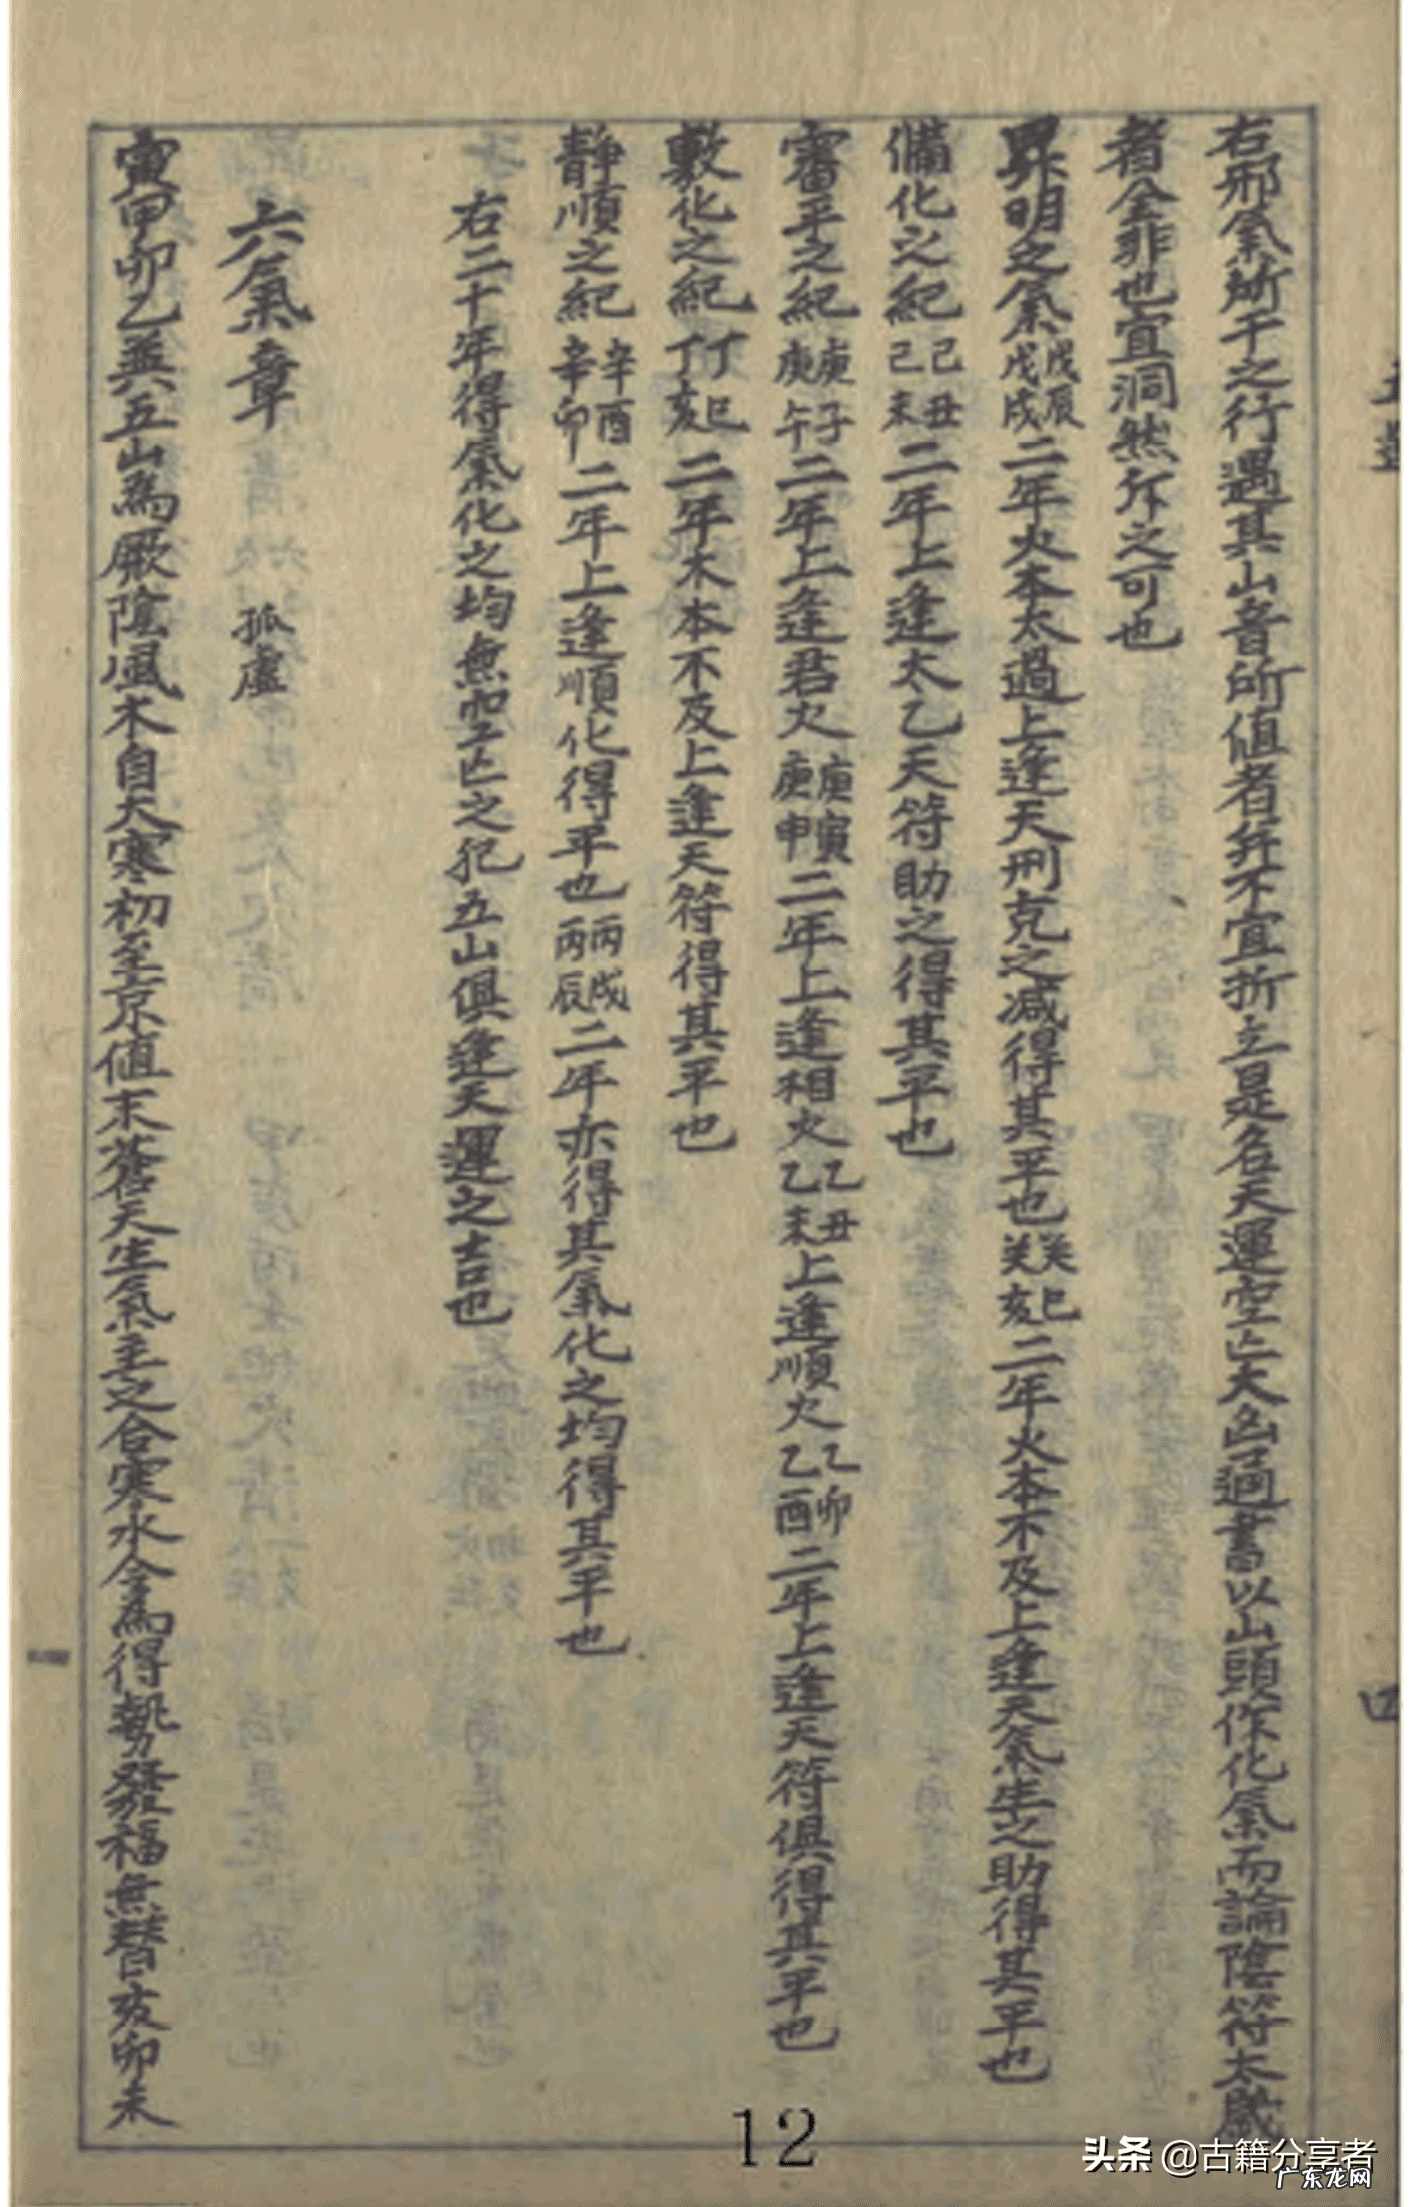 右邢氣所干之行遇其山音所値者弁不宜折立是名天運空亡大凶過書以山頭作化氣而論陰符太歲
者全非也宜洞然斥之可也
昇明之氣戊辰戊戌二年火本太過上逢天刑克之减得其平也癸巳癸亥二年火本不及上逢天氣生之助得其平也
備化之紀己丑己未二年上逢太乙天符助之得其平也
審平之紀庚子庚午二年上逢君火庚寅庚申二年上逢相火乙丑乙未上逢順火乙卯乙酉二年上逢天符俱得其平也
敷化之紀丁巳丁亥二年木本不及上逢天符得其平也
静順之紀辛酉辛卯二年上逢順化得平也丙戌丙辰二年亦得其氣化之均得其平也
右二十年得氣化之均無空亡之犯五山俱逢天運之吉也
六氣章 孤虛
寅甲卯乙巽五山為厥陰風木自大寒初至京値末蒼天生氣主之合寒水令為得勢發福無替亥卯未
四
12
头条 @古籍分享者
广东龙网